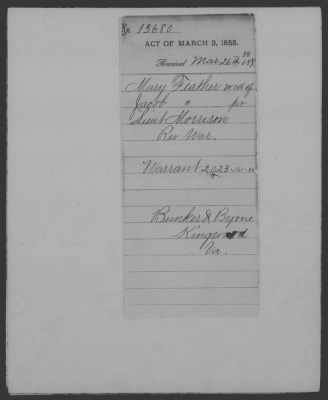 No 13680
ACT OF MARCH 3, 1855.
Received Mar 26th
Mary Feather wid of
Jacob " pr
Lieut Morrison
Rev War.
Warrant 2023
Bunker & Byrne
Kingwood
Va.